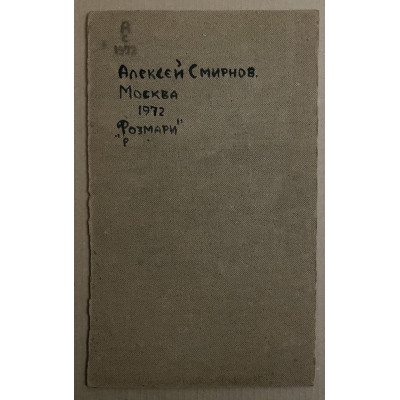 А
С
1972
Алексей Смирнов.
Москва
1972
"Розмари"
Р